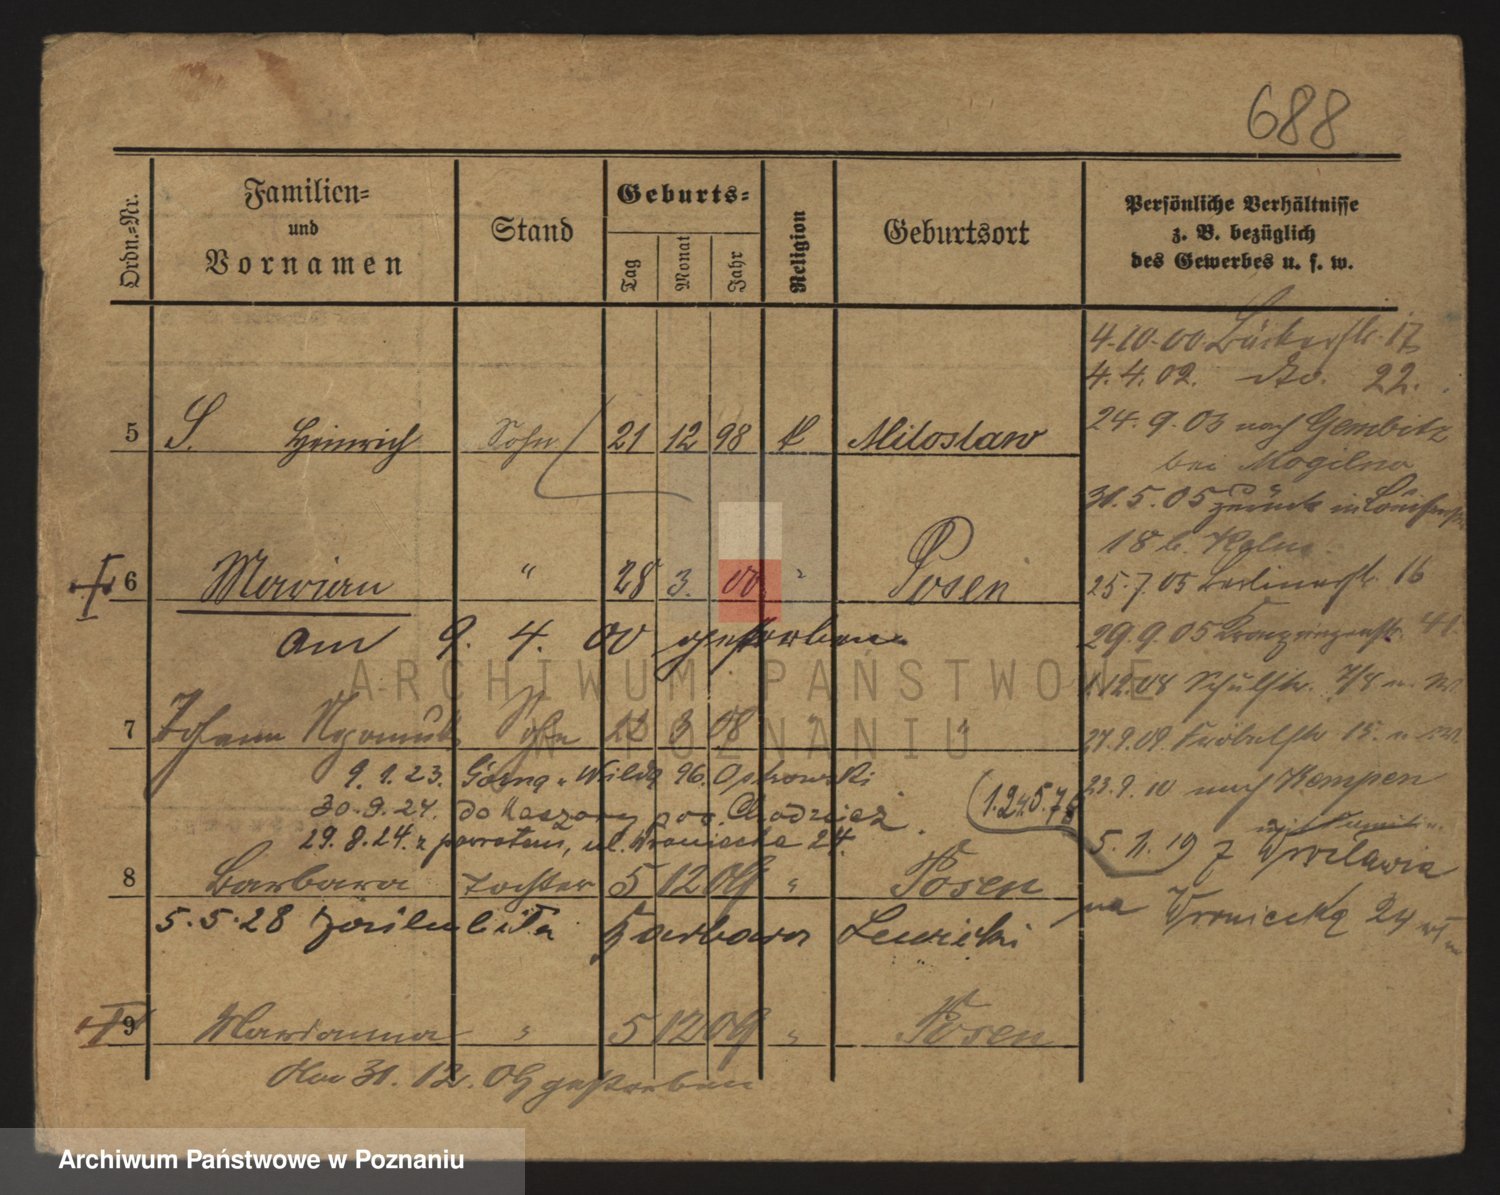 688
Ordn.-Nr.
Familien-
und
Vornamen
Stand
Geburts-
Tag
Monat
Jahr
Religion
Geburtsort
Persönliche Verhältnisse
z. B. bezüglich
des Gewerbes u. s. w.
4.10.00 Bäckerstr. 17
4.4.02. dto. 22.
5 S. Heinrich Sohn 21 12 98 k Miloslaw
24.9.03 nach Gembitz
bei Mogilno
31.5.05 zurück in
18 b.
6 Marian " 28 3. 00 " Posen
25.7.05 Berlinerstr. 16
am 9. 4. 00 gestorben
29.9.05 Kronprinzenstr. 41.
1.12.08 Schulstr. 7/8
7 Johann Sohn 23 3 08 " "
27.9.09 Fröbelstr. 15.
9.1.23. Górna Wilda 96. Opkowski
23.9.10 nach Kempen
30.9.24. do pow. Chodzież.
(1.24.5.78
29.8.24. z powrotem, ul. Wroniecka 24.
5.11.19 z Wrocławia
8 Barbara Tochter 5 12 09 " Posen
na Wroniecką 24
5.5.28 Barbara Lewicki
9 Marianna " 5 12 09 " Posen
Am 31. 12. 09 gestorben
ARCHIWUM PAŃSTWOWE
W POZNANIU
Archiwum Państwowe w Poznaniu